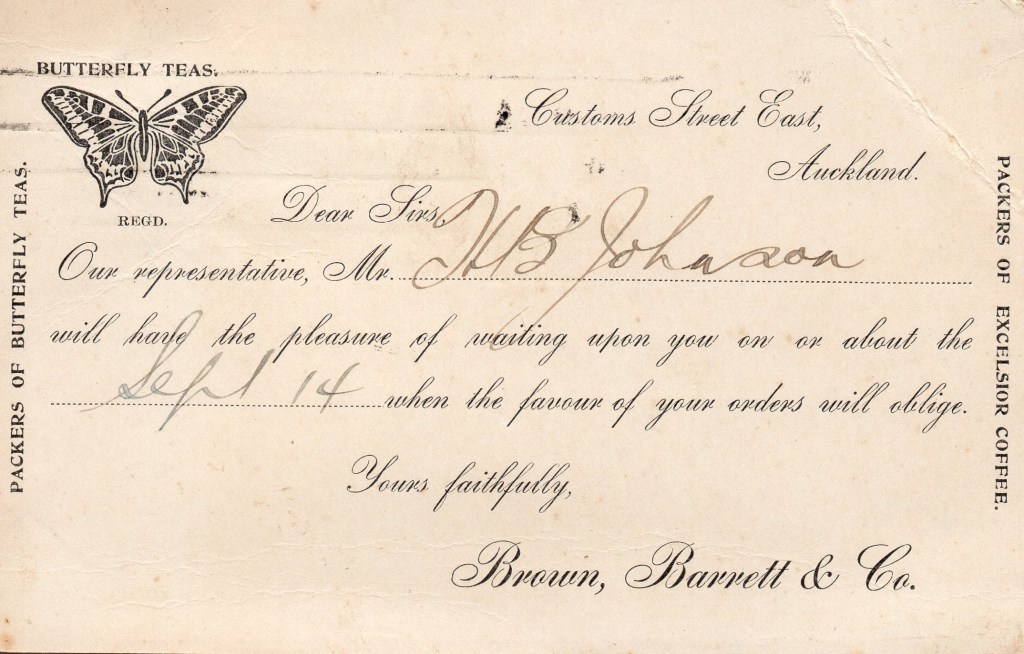 BUTTERFLY TEAS.
REGD.
Customs Street East,
Auckland.
Dear Sirs,
Our representative, Mr. H B Johnson
will have the pleasure of waiting upon you on or about the
Sept 14 when the favour of your orders will oblige.
Yours faithfully,
Brown, Barrett & Co.
PACKERS OF BUTTERFLY TEAS.
PACKERS OF EXCELSIOR COFFEE.